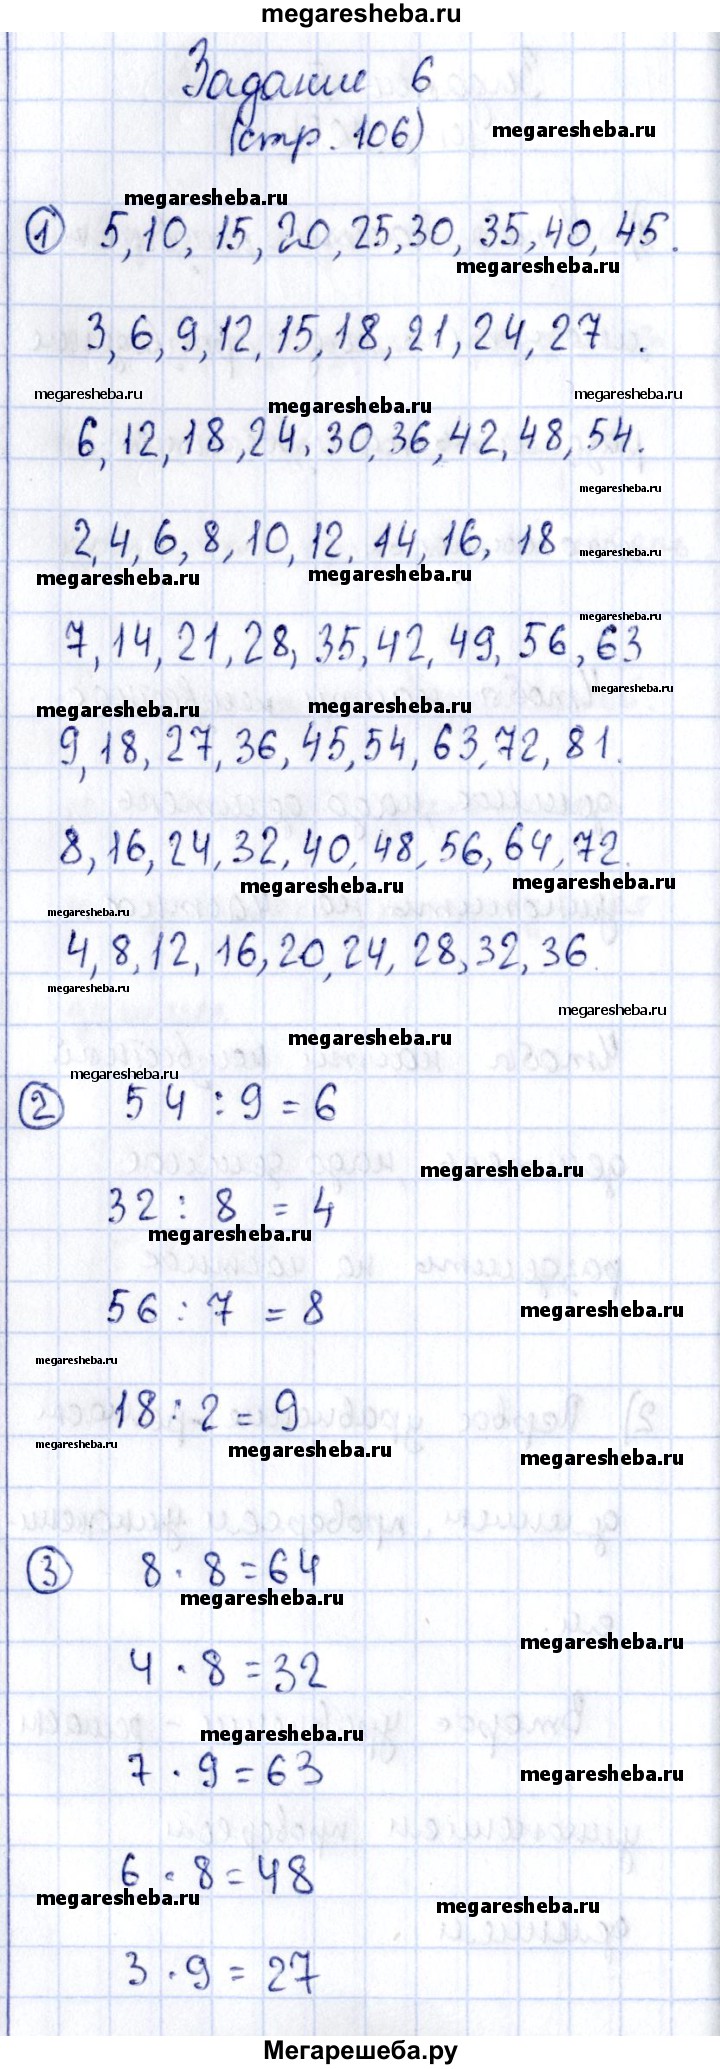 megaresheba.ru
Задание 6
(стр. 106)
megaresheba.ru
megaresheba.ru
1 5, 10, 15, 20, 25, 30, 35, 40, 45.
megaresheba.ru
3, 6, 9, 12, 15, 18, 21, 24, 27.
megaresheba.ru megaresheba.ru megaresheba.ru
6, 12, 18, 24, 30, 36, 42, 48, 54.
megaresheba.ru
2, 4, 6, 8, 10, 12, 14, 16, 18
megaresheba.ru
megaresheba.ru megaresheba.ru
megaresheba.ru
7, 14, 21, 28, 35, 42, 49, 56, 63
megaresheba.ru
megaresheba.ru megaresheba.ru
9, 18, 27, 36, 45, 54, 63, 72, 81.
8, 16, 24, 32, 40, 48, 56, 64, 72.
megaresheba.ru megaresheba.ru
megaresheba.ru
4, 8, 12, 16, 20, 24, 28, 32, 36.
megaresheba.ru
megaresheba.ru
megaresheba.ru
megaresheba.ru
2 54 : 9 = 6
megaresheba.ru
32 : 8 = 4
megaresheba.ru
56 : 7 = 8
megaresheba.ru
megaresheba.ru
18 : 2 = 9
megaresheba.ru megaresheba.ru megaresheba.ru
3 8 · 8 = 64
megaresheba.ru
megaresheba.ru
4 · 8 = 32
megaresheba.ru
7 · 9 = 63
megaresheba.ru
6 · 8 = 48
megaresheba.ru megaresheba.ru
3 · 9 = 27
Мегарешеба.ру